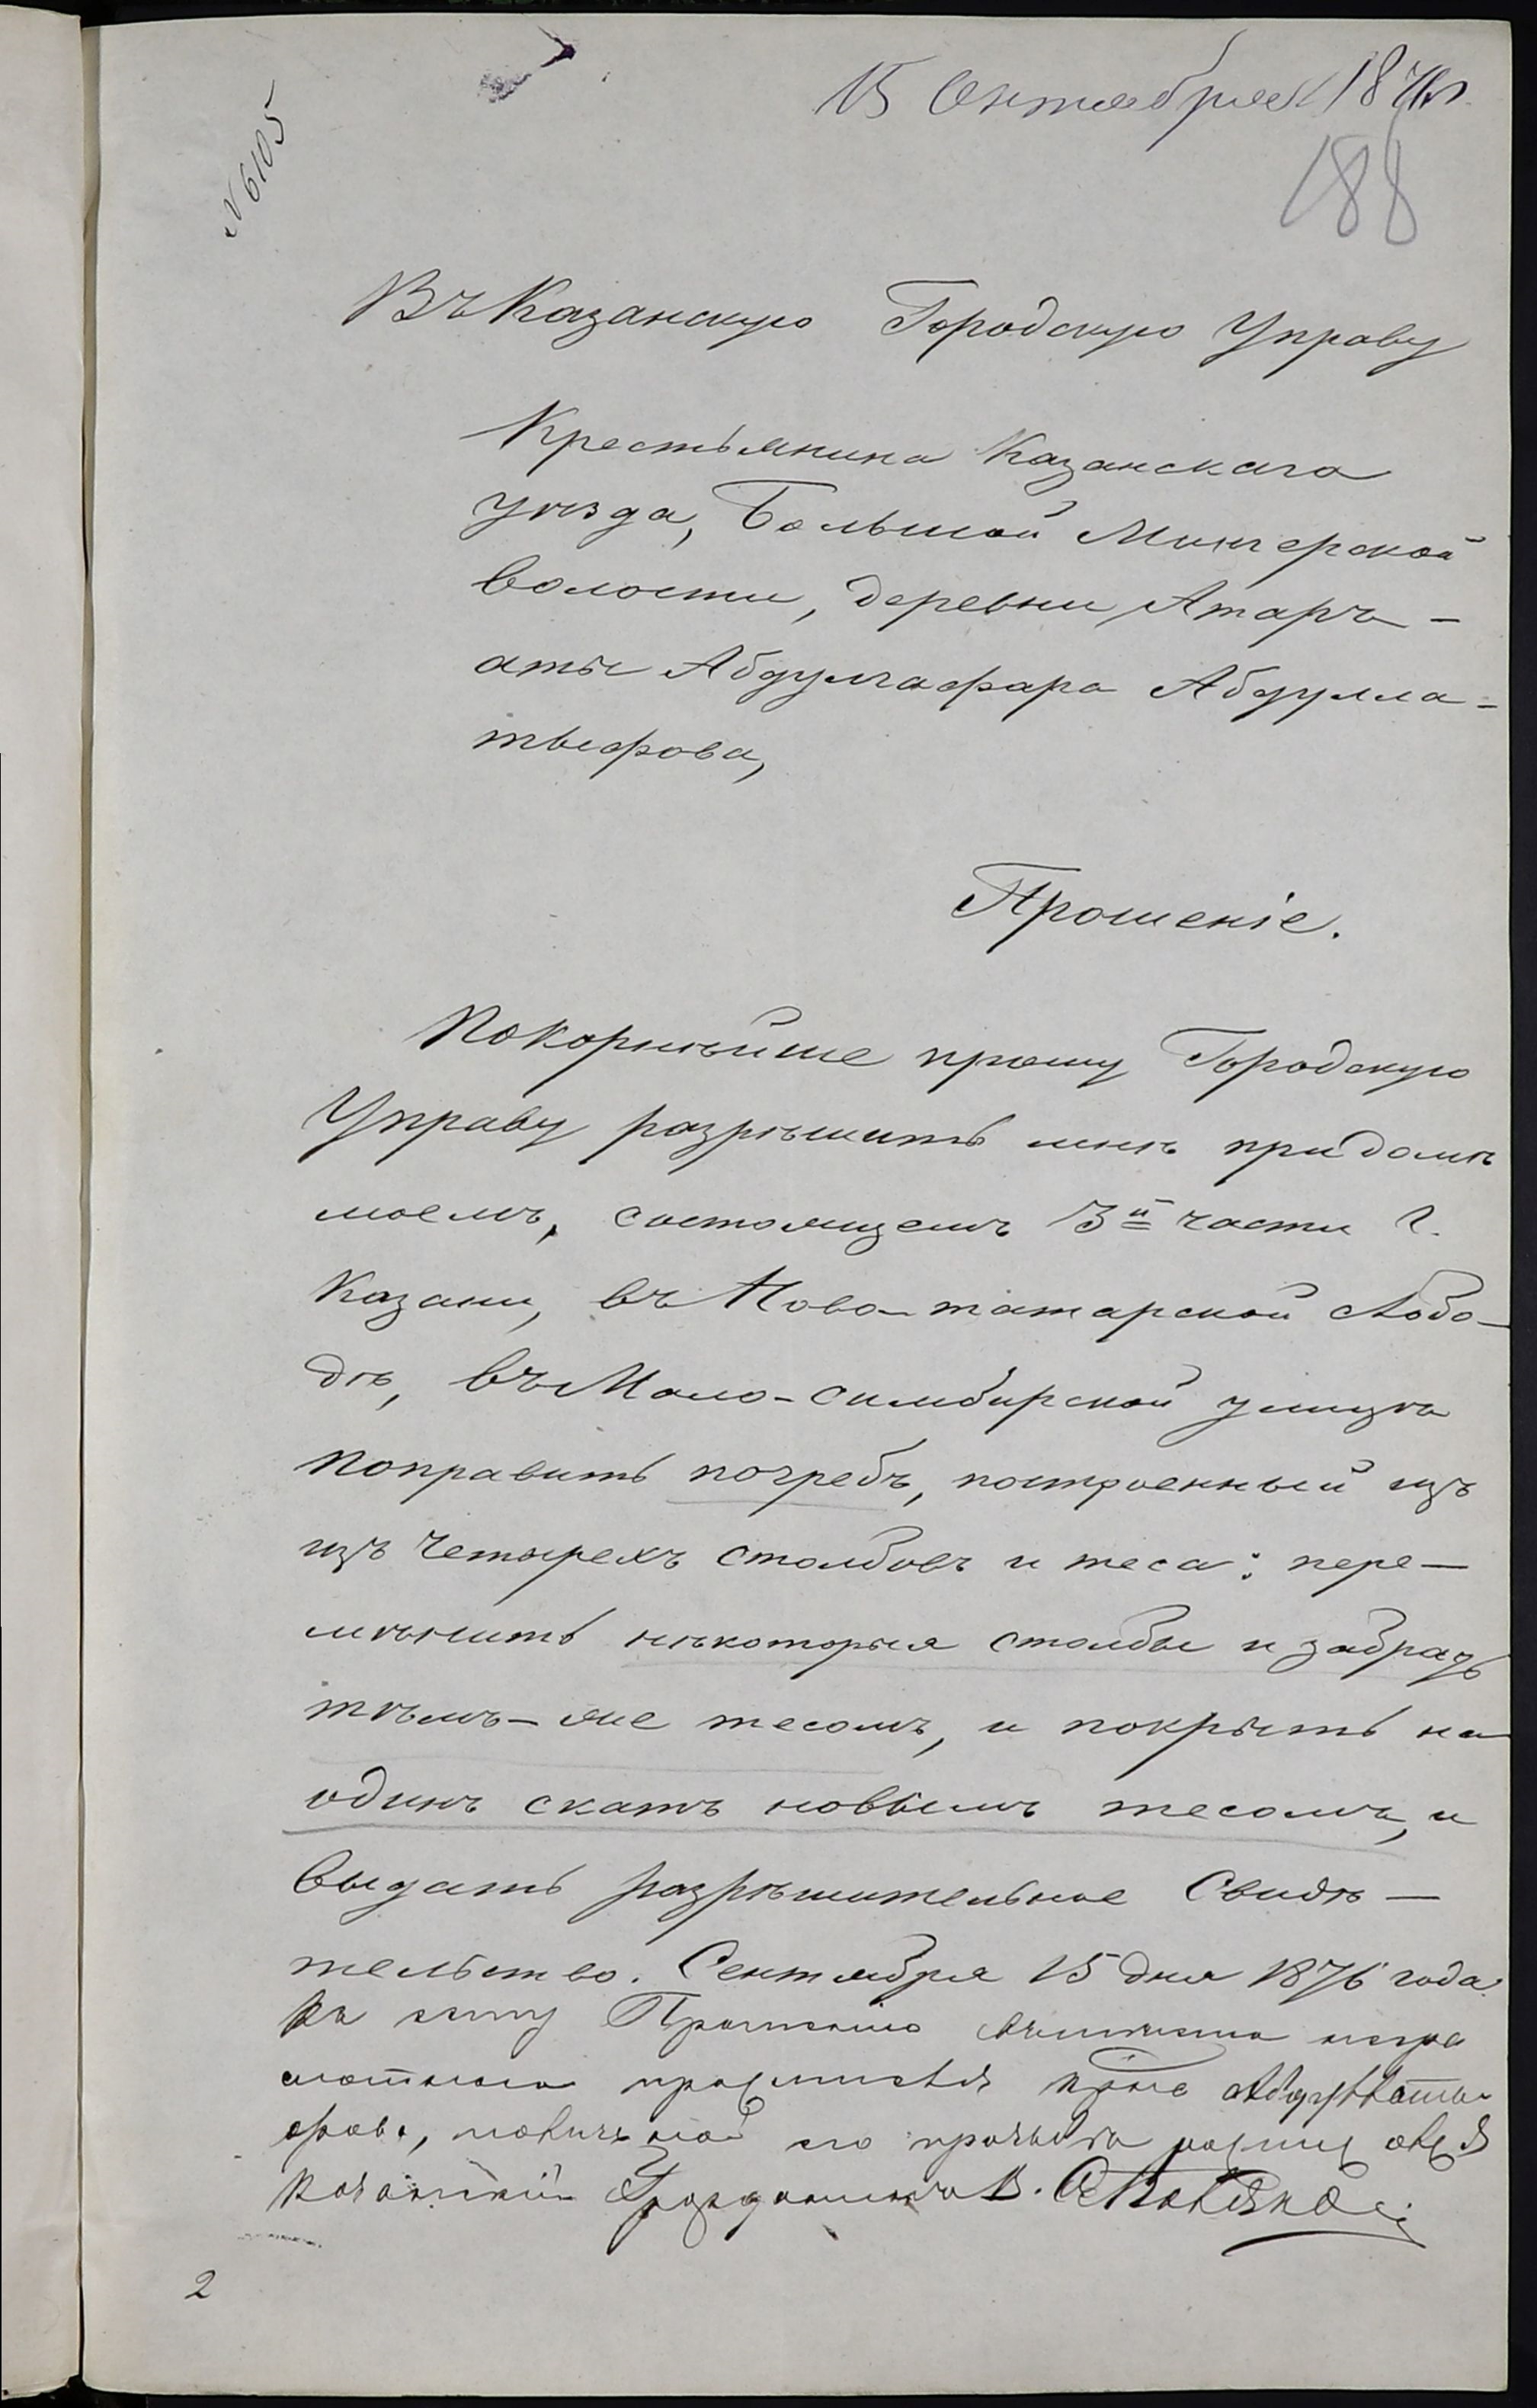 15 Сентября 1876
188
№ 6105
Въ Казанскую Городскую Управу
Крестьянина Казанскаго
уѣзда, Большой Менгерской
волости, деревни Атаръ-
аты Абдулгафара Абдулла-
тыфова,
Прошеніе.
Покорнѣйше прошу Городскую
Управу разрѣшить мнѣ при домѣ
моемъ, состоящемъ 3й части г.
Казани, въ Ново-татарской слобо-
дѣ, въ Мало-симбирской улицѣ
поправить погребъ, построенный изъ
изъ четырехъ столбовъ и теса: пере-
мѣнить нѣкоторыя столбы и забрать
тѣмъ-же тесомъ, и покрыть на
одинъ скатъ новымъ тесомъ, и
выдать разрѣшительное Свидѣ-
тельство. Сентября 15 дня 1876 года
Къ сему Прошенію вмѣсто негра
мотнаго Абдуллаты
фова, по личной его прозьбѣ
Казанскій
2